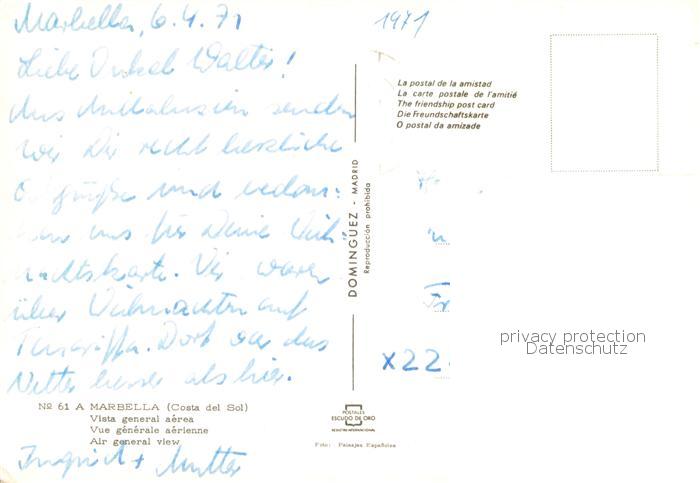 Marbella, 6.4.71
Liebe Onkel Walter!
Aus Andalusien senden
wir Dir recht herzliche
und bedan-
ken uns für Deine Weih-
nachtskarte. Wir waren
über Weihnachten auf
Teneriffa. Dort war das
Wetter besser als hier.
Nº 61 A MARBELLA (Costa del Sol)
Vista general aérea
Vue générale aérienne
Air general view
Ingrid + Mutter
DOMINGUEZ - MADRID
Reproducción prohibida
POSTALES
ESCUDO DE ORO
REGISTRO INTERNACIONAL
Foto: Paisajes Españoles
1971
La postal de la amistad
La carte postale de l'amitié
The friendship post card
Die Freundschaftskarte
O postal da amizade
Fr
x22
privacy protection
Datenschutz